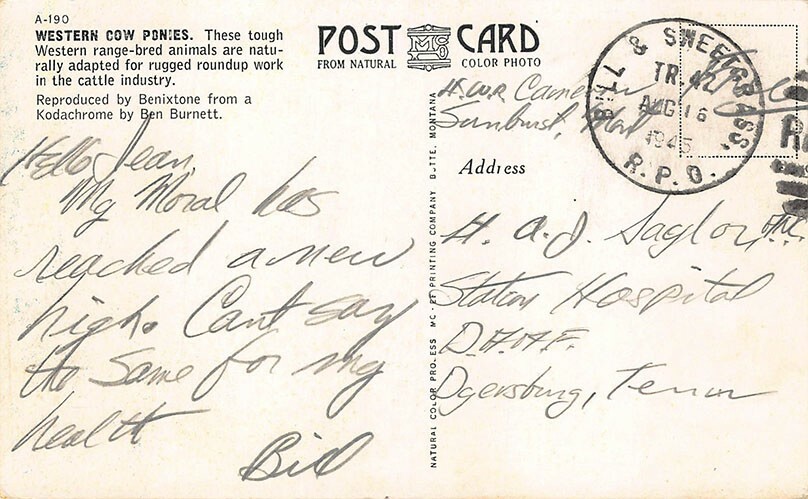 A-190
WESTERN COW PONIES. These tough
Western range-bred animals are natu-
rally adapted for rugged roundup work
in the cattle industry.
Reproduced by Benixtone from a
Kodachrome by Ben Burnett.
POST CARD
FROM NATURAL COLOR PHOTO
BILL & SWEETGRASS.
TR. 42
AUG 16
1945
R.P.O.
Cameron
Sunburst, Mont
Address
Hello Jean,
My Moral has
reached a new
high. Can't say
the Same for my
health
Bill
H. A. J. Saylor
Station Hospital
D.A.A.F.
Dyersburg, Tenn
NATURAL COLOR PROCESS MC-KEE PRINTING COMPANY BUTTE, MONTANA